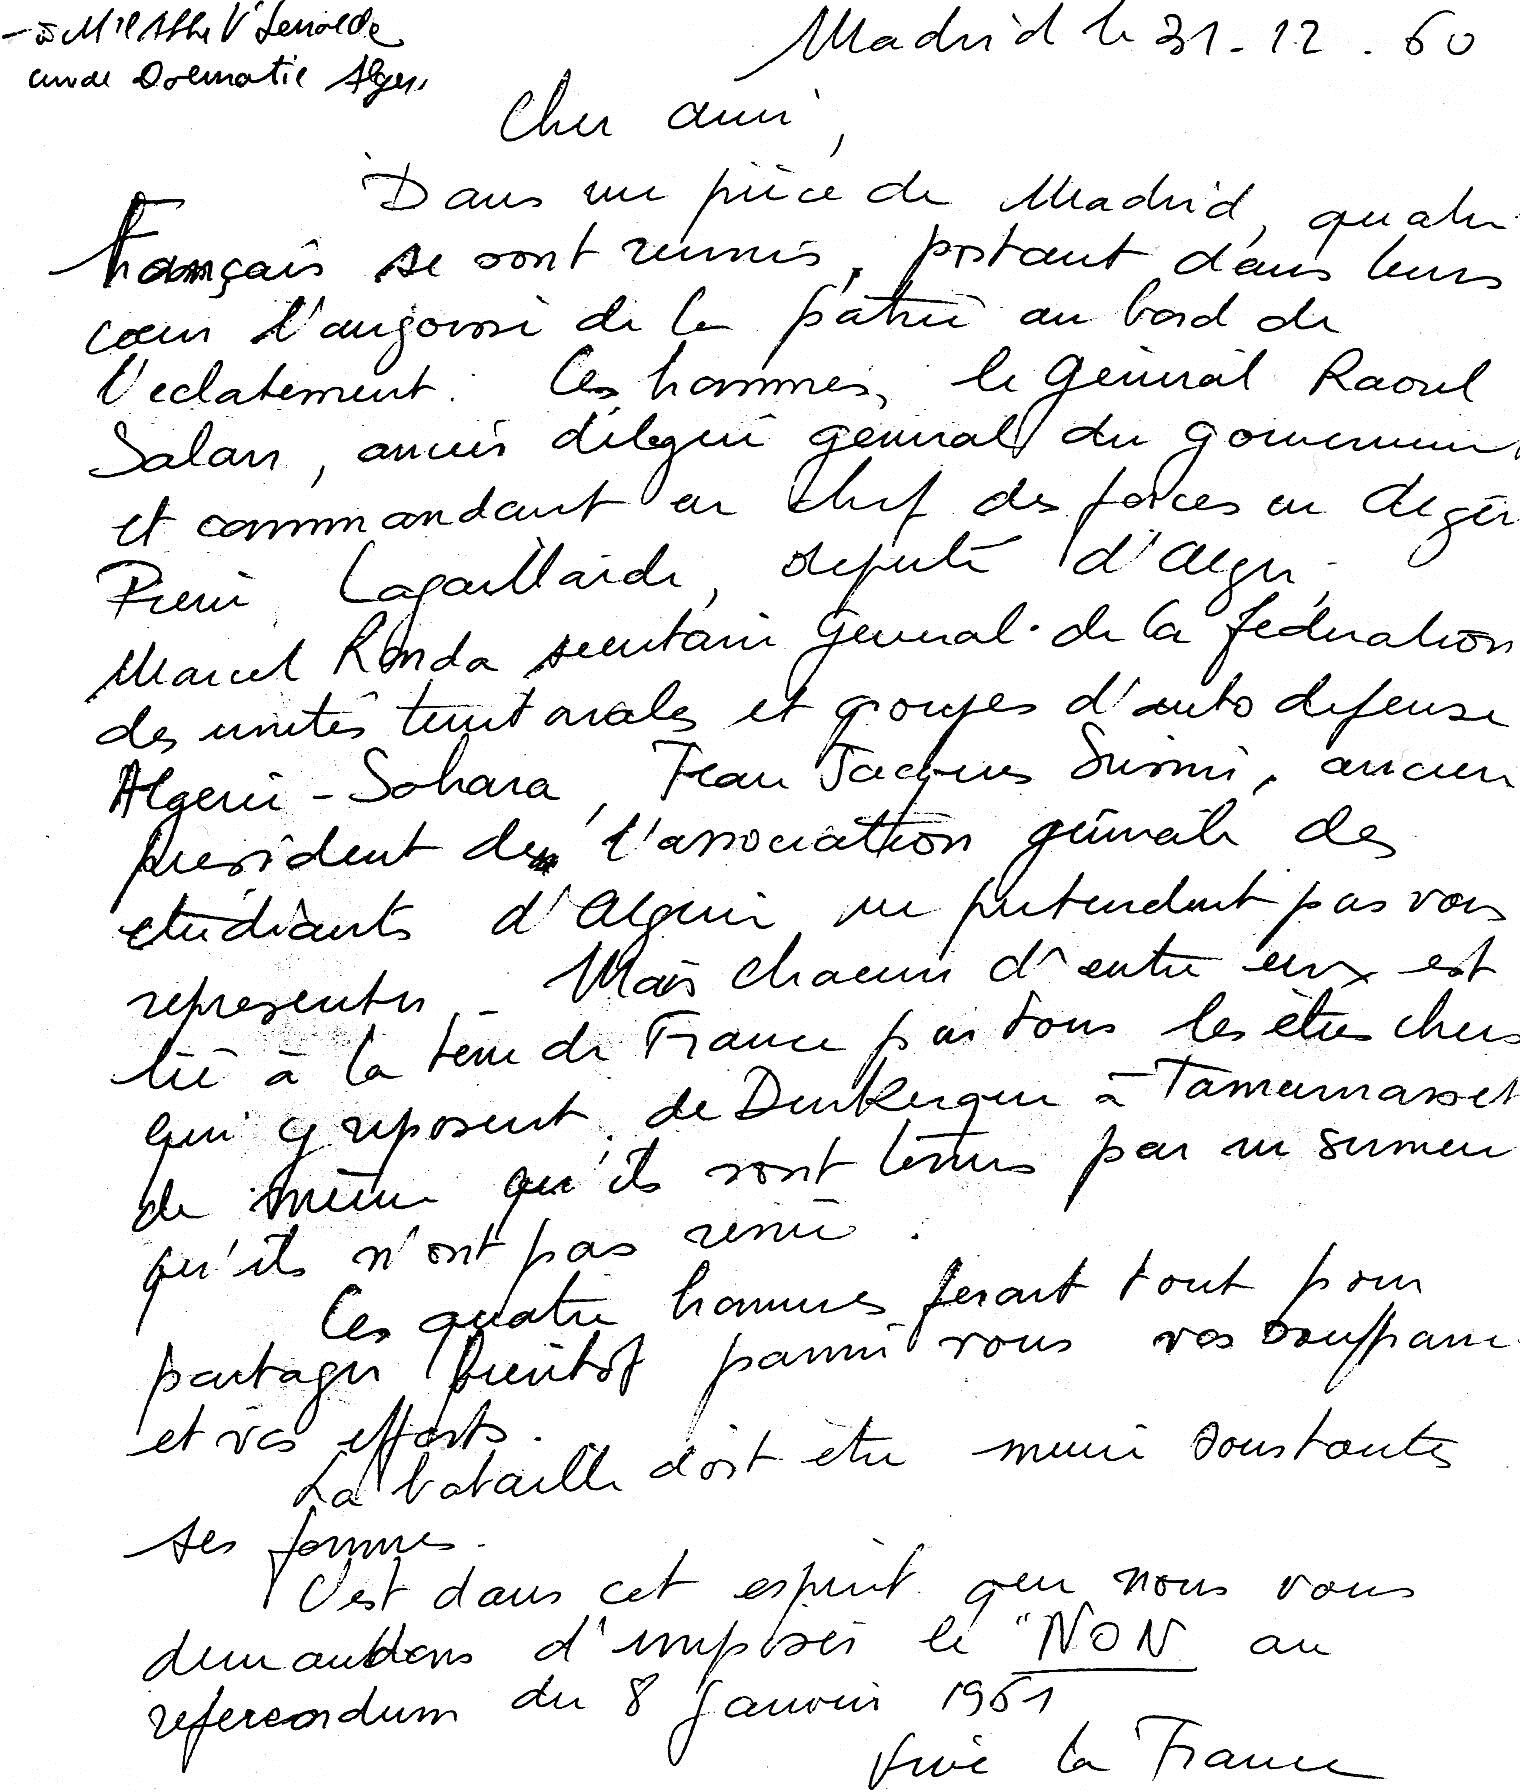 - à Mr l'Abbé
curé de Dalmatie Alger.
Madrid le 31-12.60
Cher ami,
Dans une pièce de Madrid, quatre
Français se sont réunis, portant dans leurs
cœur l'angoisse de la patrie au bord de
l'eclatement. Ces hommes, le Général Raoul
Salan, ancien délégué général du gouvernement
et commandant en chef des forces en Algér
Pierre Lagaillarde, député d'Alger,
Marcel Ronda secretaire General de la fédération
des unités territoriales et groupes d'auto defense
Algerie-Sahara, Jean Jacques Susini, ancien
president de l'association générale des
etudiants d'Algerie ne pretendent pas vous
representer. Mais chacun d'entre eux est
lié à la terre de France par tous les êtres chers
qui y reposent, de Dunkerque à Tamanrasset
de même qu'ils sont tenus par un serment
qu'ils n'ont pas renié.
Ces quatre hommes feront tout pour
partager bientôt parmi vous vos souffrance
et vos efforts.
La bataille doit être menée sous toutes
ses formes.
C'est dans cet esprit que nous vous
demandons d'imposer le "NON au
referendum du 8 Janvier 1961
Vive la France